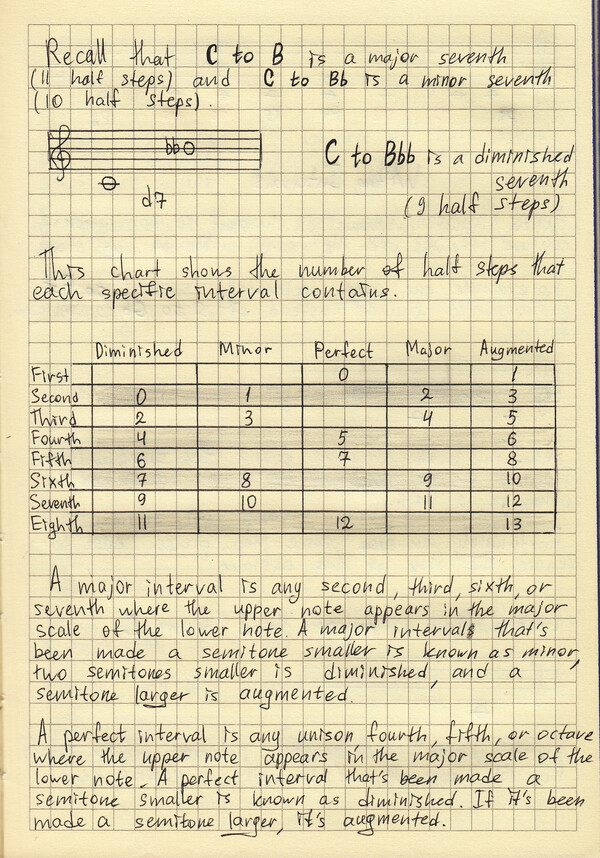 Recall that C to B is a major seventh
(11 half steps) and C to Bb is a minor seventh
(10 half steps).
bb
d7
C to Bbb is a diminished
seventh
(9 half steps)
This chart shows the number of half steps that
each specific interval contains.
Diminished Minor Perfect Major Augmented
First 0 1
Second 0 1 2 3
Third 2 3 4 5
Fourth 4 5 6
Fifth 6 7 8
Sixth 7 8 9 10
Seventh 9 10 11 12
Eighth 11 12 13
A major interval is any second, third, sixth, or
seventh where the upper note appears in the major
scale of the lower note. A major intervals that's
been made a semitone smaller is known as minor,
two semitones smaller is diminished, and a
semitone larger is augmented.
A perfect interval is any unison fourth, fifth, or octave
where the upper note appears in the major scale of the
lower note. A perfect interval that's been made a
semitone smaller is known as diminished. If it's been
made a semitone larger, it's augmented.